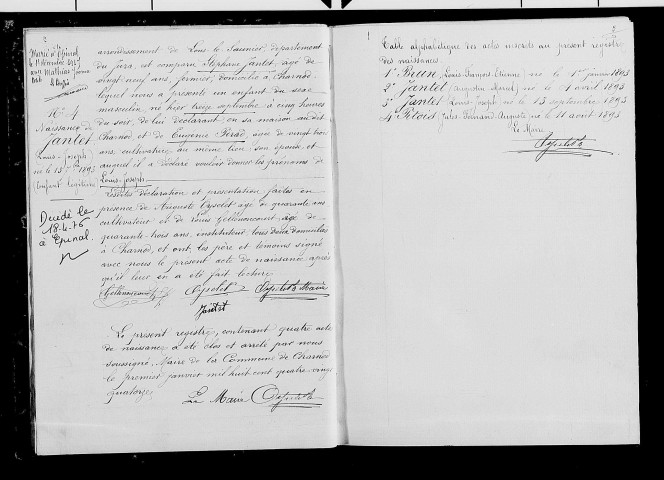 2
Marié à Epinal
le 11 décembre
avec Mathieu
N° 4
Naissance de
Jantet
Louis-Joseph
né le 13 7bre 1893
Enfant légitime
Décédé le
18-4-76
à Epinal.
arrondissement de Lons-le-Saunier, département
du Jura, est comparu Stéphane Jantet, âgé de
vingt-neuf ans, fermier, domicilié à Charnod,
lequel nous a présenté un enfant du sexe
masculin, né hier treize septembre à cinq heures
du soir, de lui déclarant en sa maison audit
Charnod, et de Eugénie Perad, âgée de vingt-
ans, cultivateur, au même lieu son épouse et
auquel il a déclaré vouloir donner les prénoms de
Louis-Joseph
Lesdites déclaration et présentation faites en
présence de Auguste âgé de quarante ans
cultivateur et de Louis âgé de
quarante-trois ans, instituteur, tous deux domiciliés
à Charnod, et ont, les père et témoins signé
avec nous le présent acte de naissance après
qu'il leur en a été fait lecture.
Maire
Jantet
Le présent registre, contenant quatre actes
de naissance a été clos et arrêté par nous
soussigné, Maire de la Commune de Charnod
le premier janvier mil huit cent quatre-vingt
quatorze
Le Maire
2
Table alphabétique des actes inscrits au présent registre
des naissances.
1° Buen Louis-François-Etienne né le 1er janvier 1893
2° Jantet Augustin Marcel né le 1 avril 1893
3° Jantet Louis-Joseph né le 13 septembre 1893
4° Jules Fernand-Auguste né le 11 août 1893
Le Maire